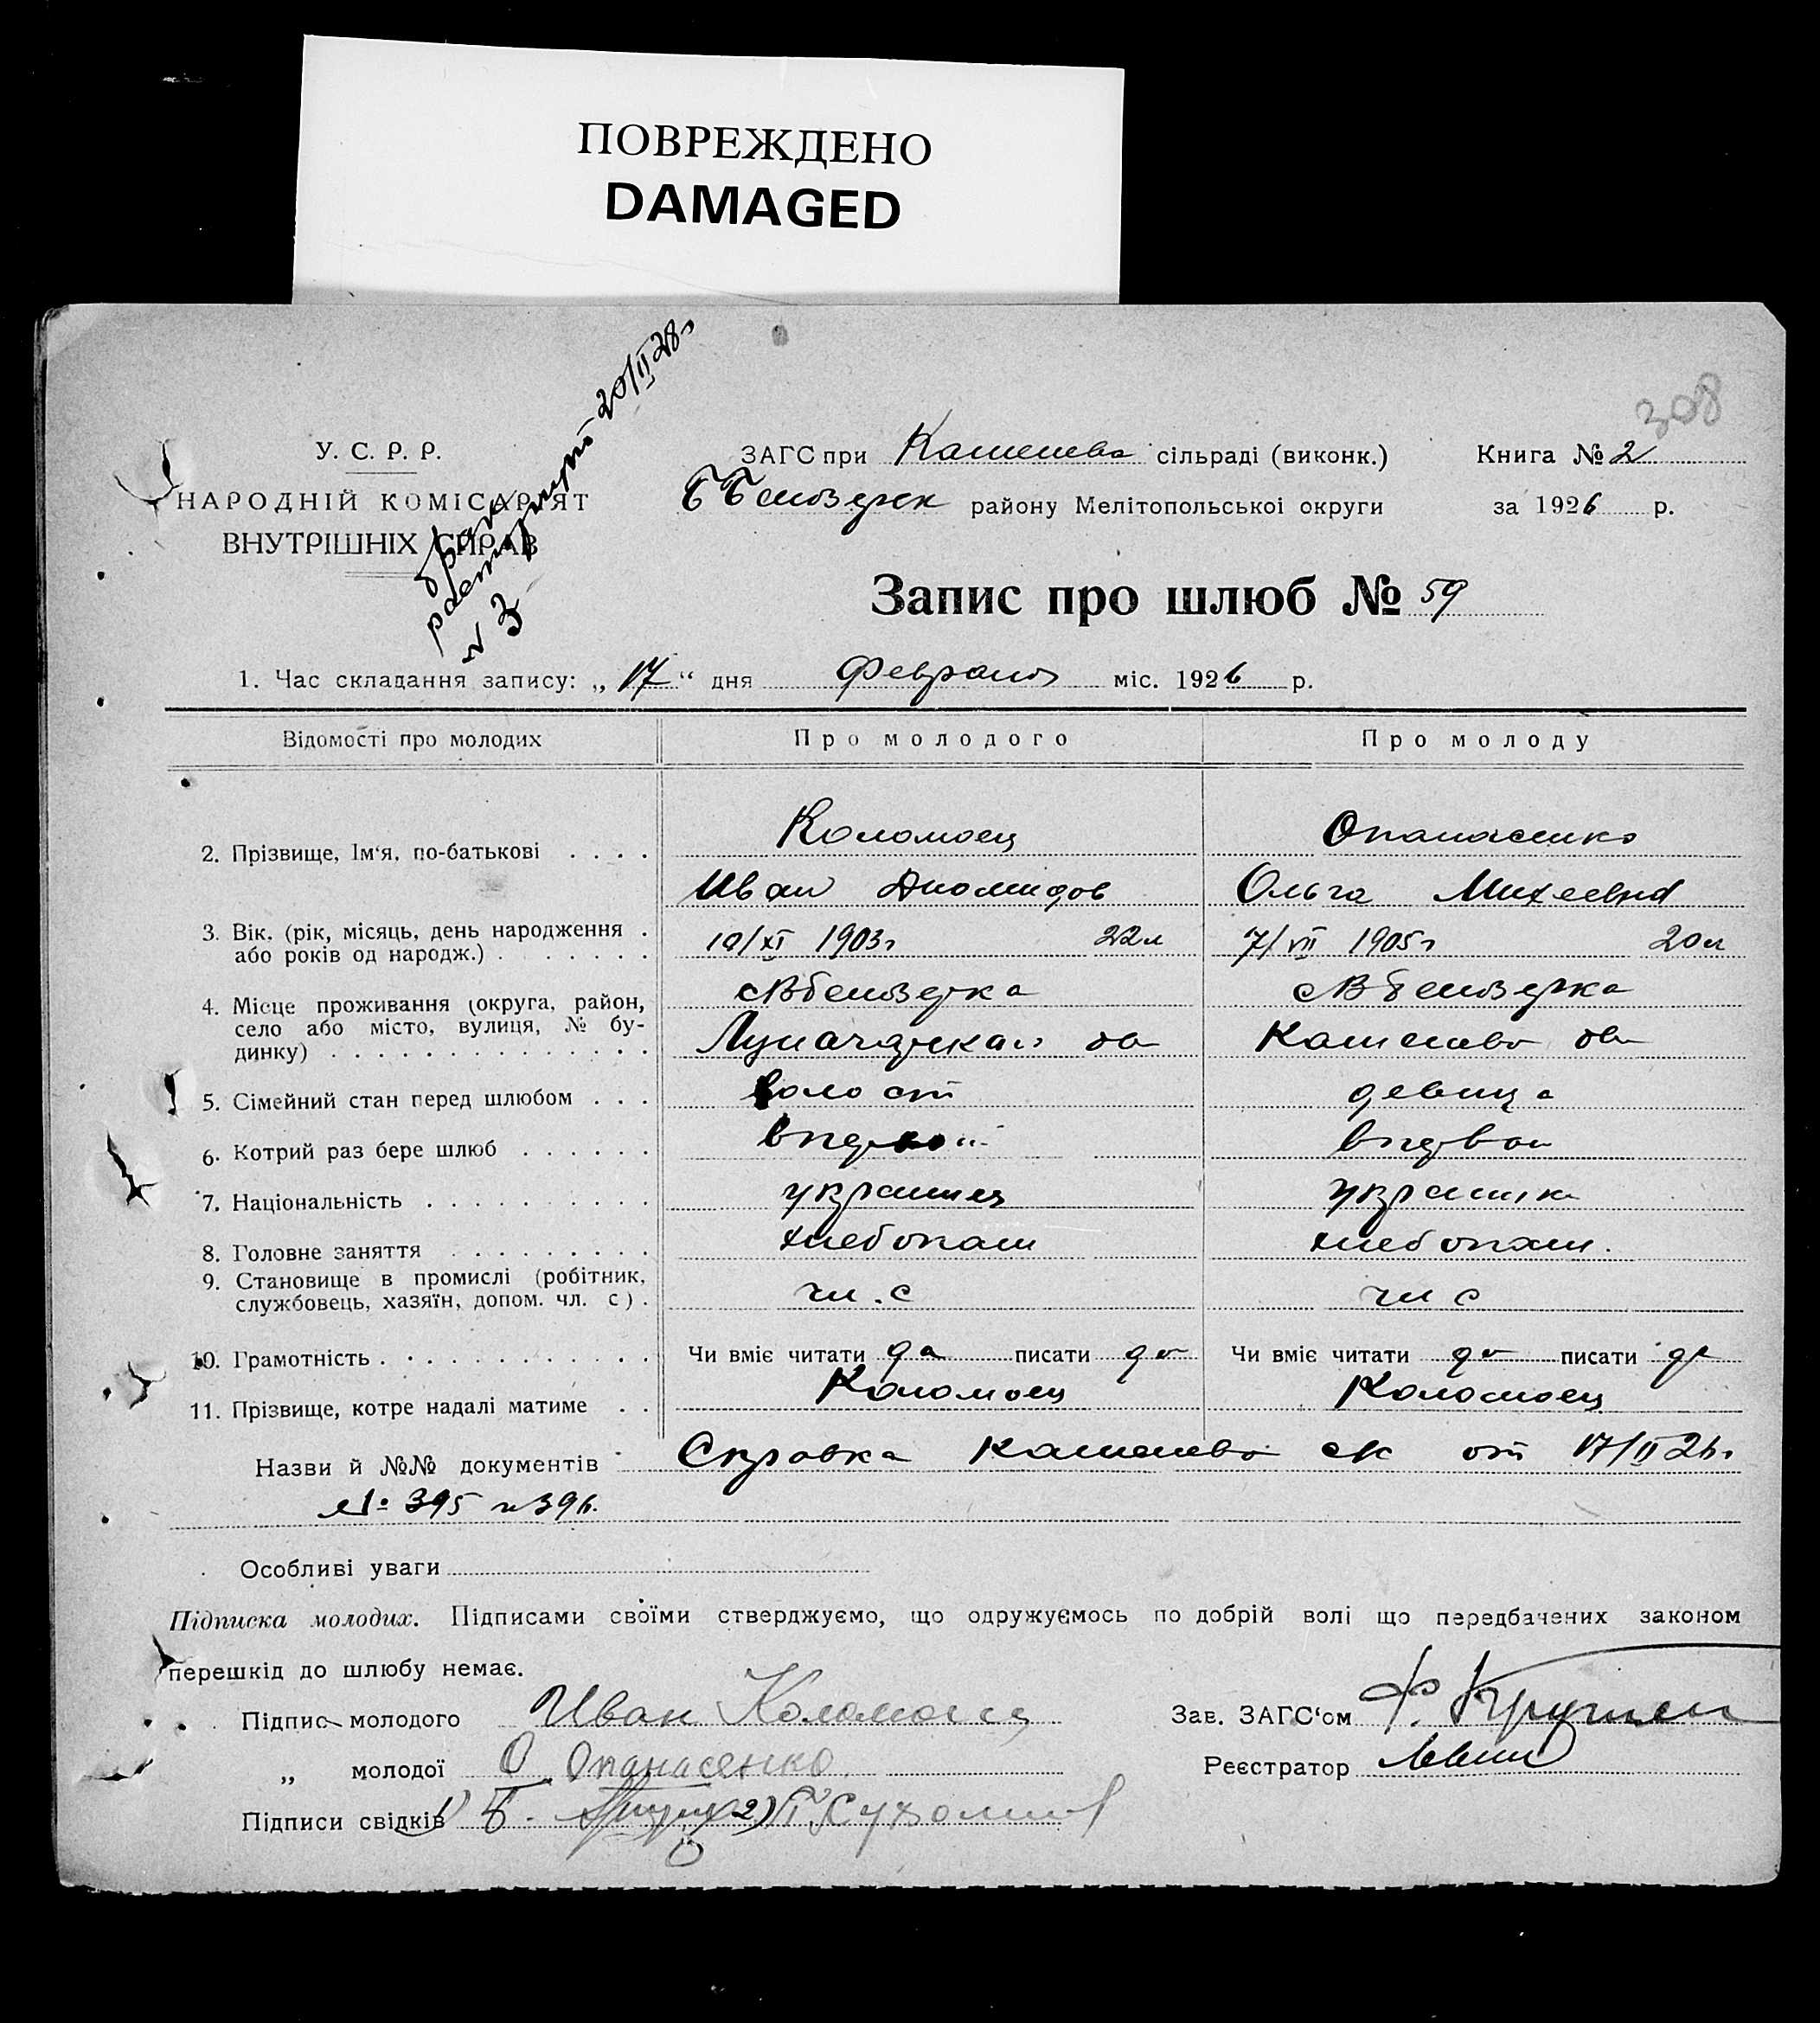 ПОВРЕЖДЕНО
DAMAGED
308
У. С. Р. Р.
НАРОДНІЙ КОМІСАРІЯТ
ВНУТРІШНІХ СПРАВ
брак
расторгнут 20/II 28 г
№ 3
ЗАГС при сільраді (виконк.) Книга № 2
району Мелітопольської округи за 1926 р.
Запис про шлюб № 59
1. Час складання запису: „17“ дня Февраля міс. 1926 р.
Відомості про молодих Про молодого Про молоду
2. Прізвище, Ім'я, по-батькові . . . . Коломоец Опанасенко
Иван Диомидов Ольга Михеевна
3. Вік. (рік, місяць, день народження . або років од народж.) . . . . . . . 10/XI 1903 г 22 л 7/VII 1905 г 20 л
4. Місце проживання (округа, район, село або місто, вулиця, № будинку) . . . . . . . . . . . . . . Вбелозерка Вбелозерка
5. Сімейний стан перед шлюбом . . . холост девица
6. Котрий раз бере шлюб . . . . . . впервой впервой
7. Національність . . . . . . . . . . украинец украинка
8. Головне заняття . . . . . . . . . хлебопаш хлебопаш.
9. Становище в промислі (робітник, службовець, хазяїн, допом. чл. с) . чл. с чл с
10. Грамотність . . . . . . . . . . . . Чи вміє читати да писати да Чи вміє читати да писати да
11. Прізвище, котре надалі матиме . . Коломоец Коломоец
Назви й №№ документів Справка ск от 17/II 26 г
№ 395 и 396.
Особливі уваги
Підписка молодих. Підписами своїми стверджуємо, що одружуємось по добрій волі що передбачених законом
перешкід до шлюбу немає.
Підпис молодого Иван Коломоец Зав. ЗАГС'ом
„ молодої О Опанасенко Реєстратор
Підписи свідків 1) 2)